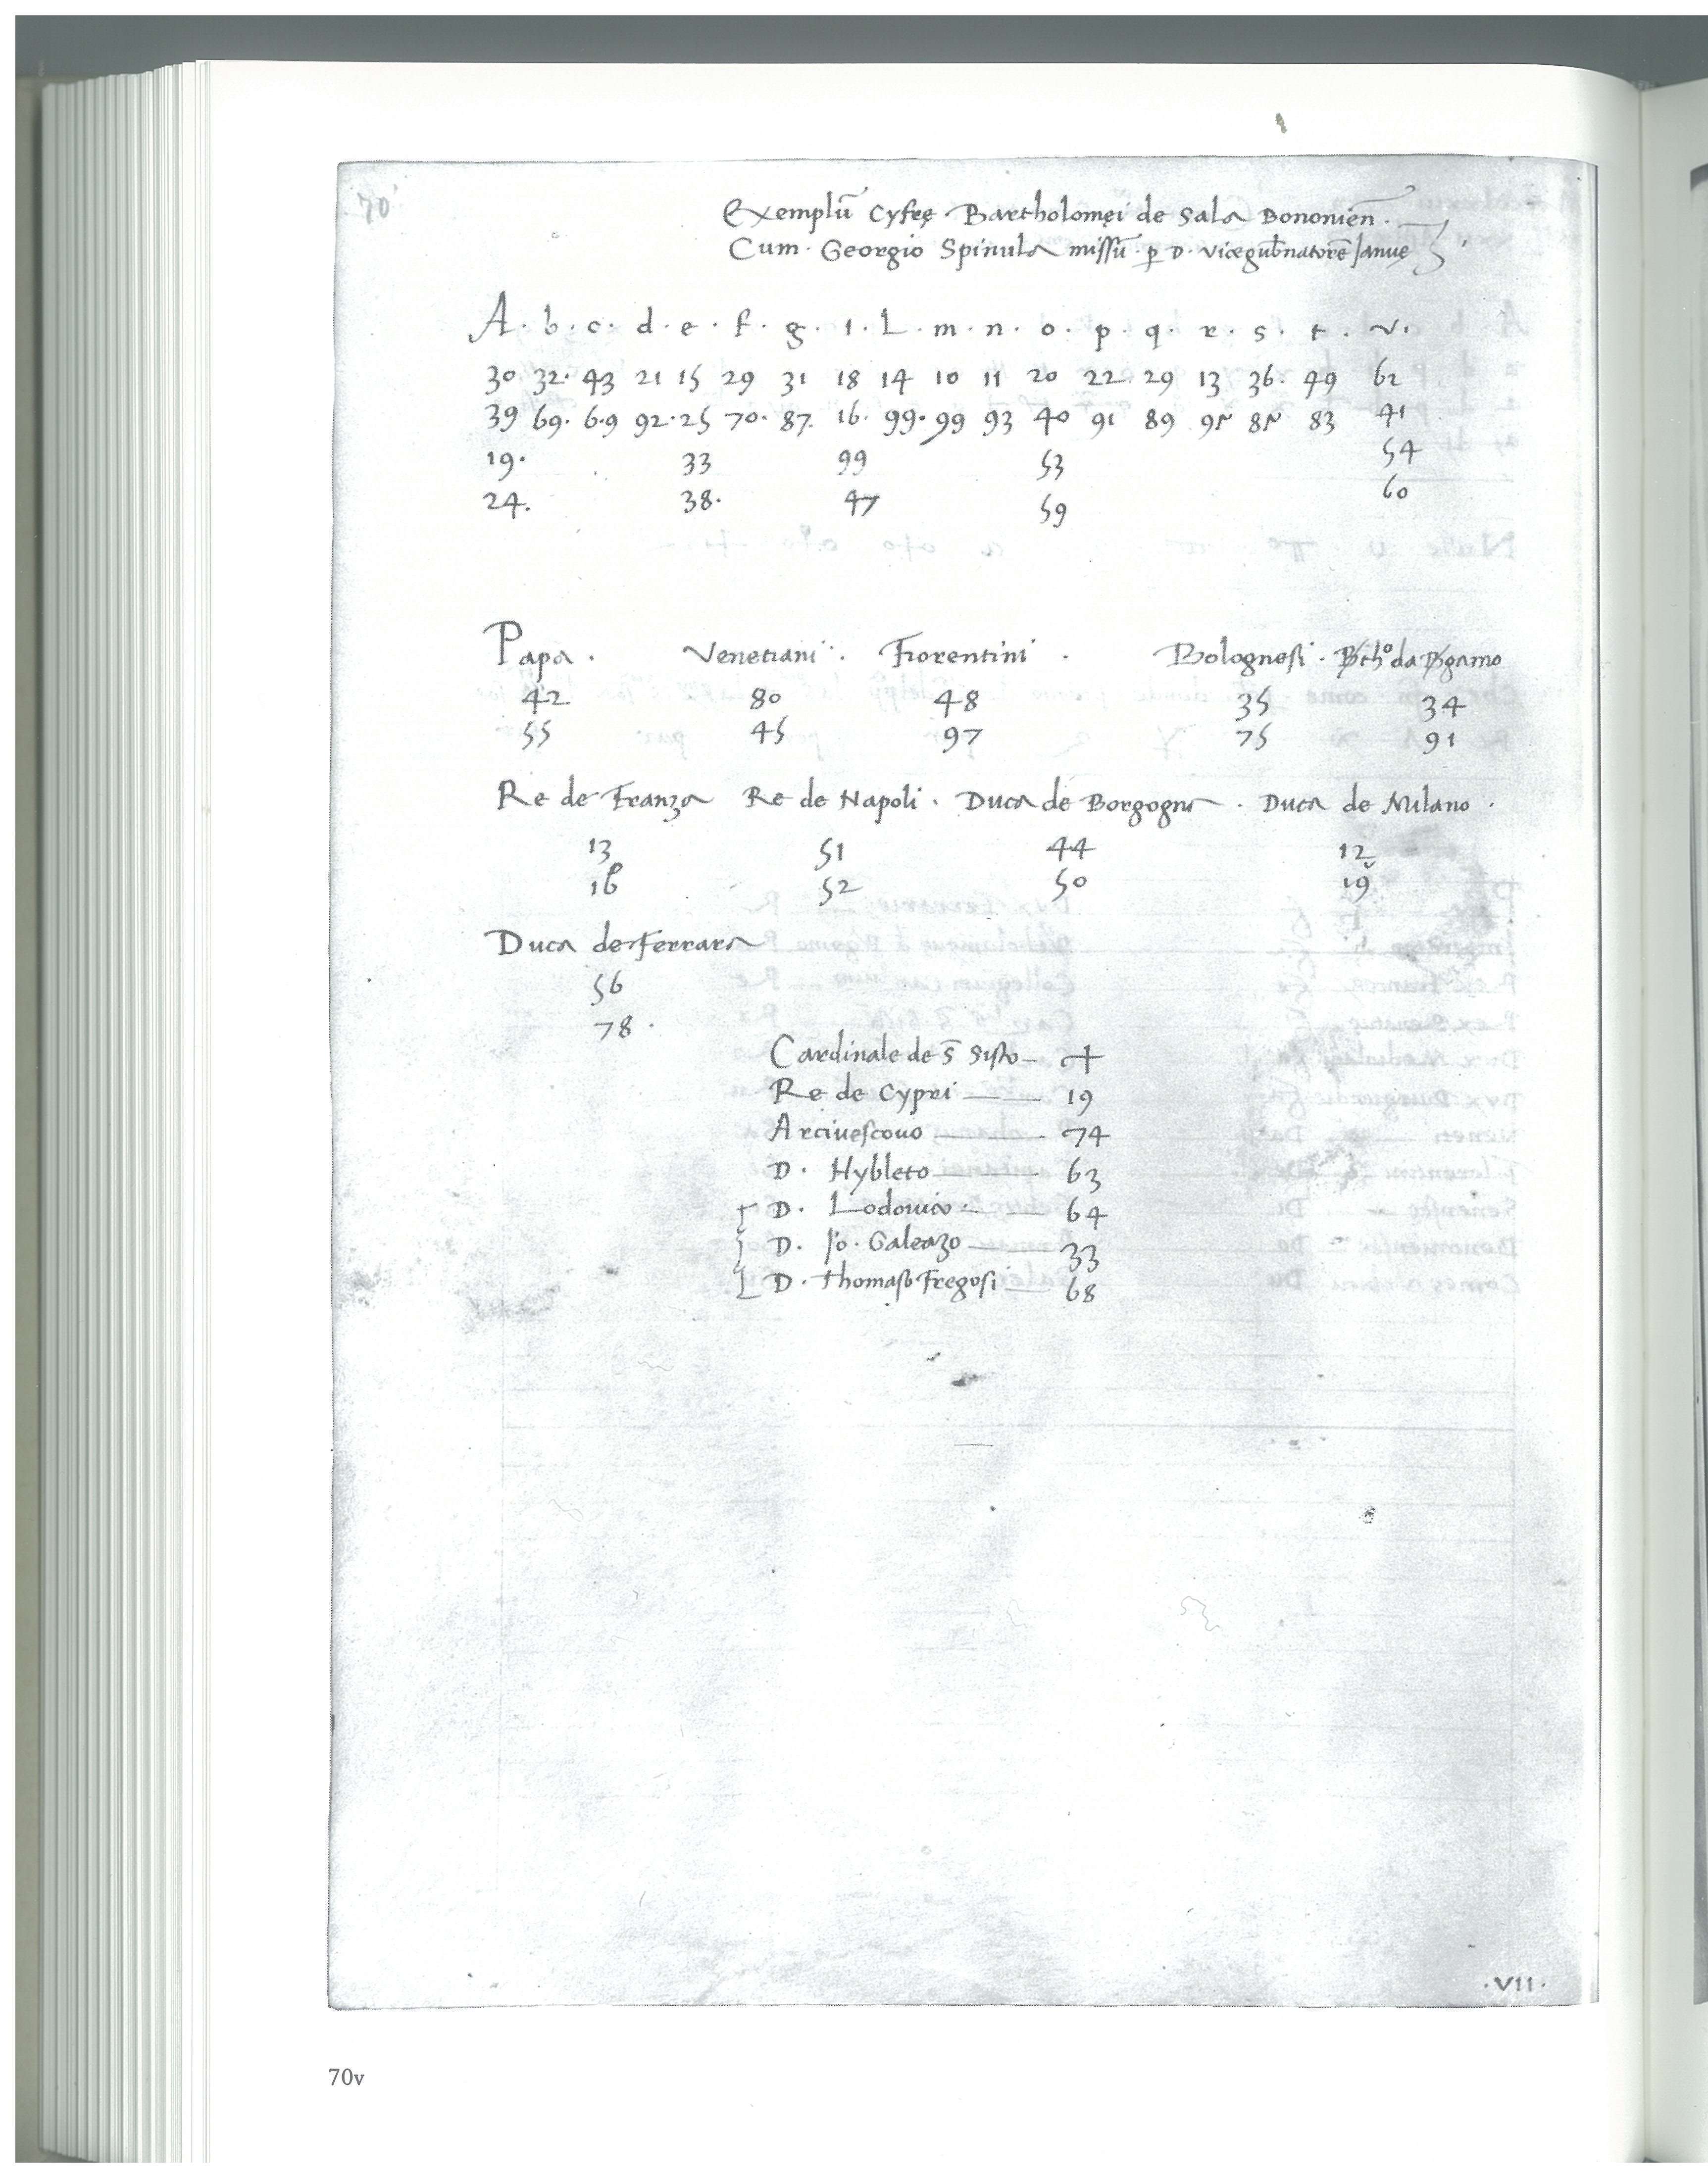 70
Exemplū Cyfrę Bartholomęi de Sala Bononień.
Cum Georgio Spinula missū p D. vicegub̄natorē Ianuę
A. b. c. d. e. f. g. i. L. m. n. o. p. q. r. s. t. v.
30 32. 43 21 15 29 31 18 14 10 11 20 22. 29 13 36. 49 62
39 69. 6.9 92. 25 70. 87. 16. 99. 99 93 40 91 89 95 85 83 41
19. 33 99 53 54
24. 38. 47 59 60
Papa. Venetiani. Fiorentini. Bolognesi. Bthº da Bgamo
42 80 48 35 34
55 45 97 75 91
Re de Franza Re de Napoli. Duca de Borgogna. Duca de Milano.
13 51 44 12
16 52 50 19
Duca de Ferrara
56
78.
Cardinale de S̄ Sisto
Re de Cypri 19
Arciuescouo 74
D. Hybleto 63
D. Lodouico 64
D. Io. Galeazo 33
D. Thomaso Fregosi 68
.VII.
70v